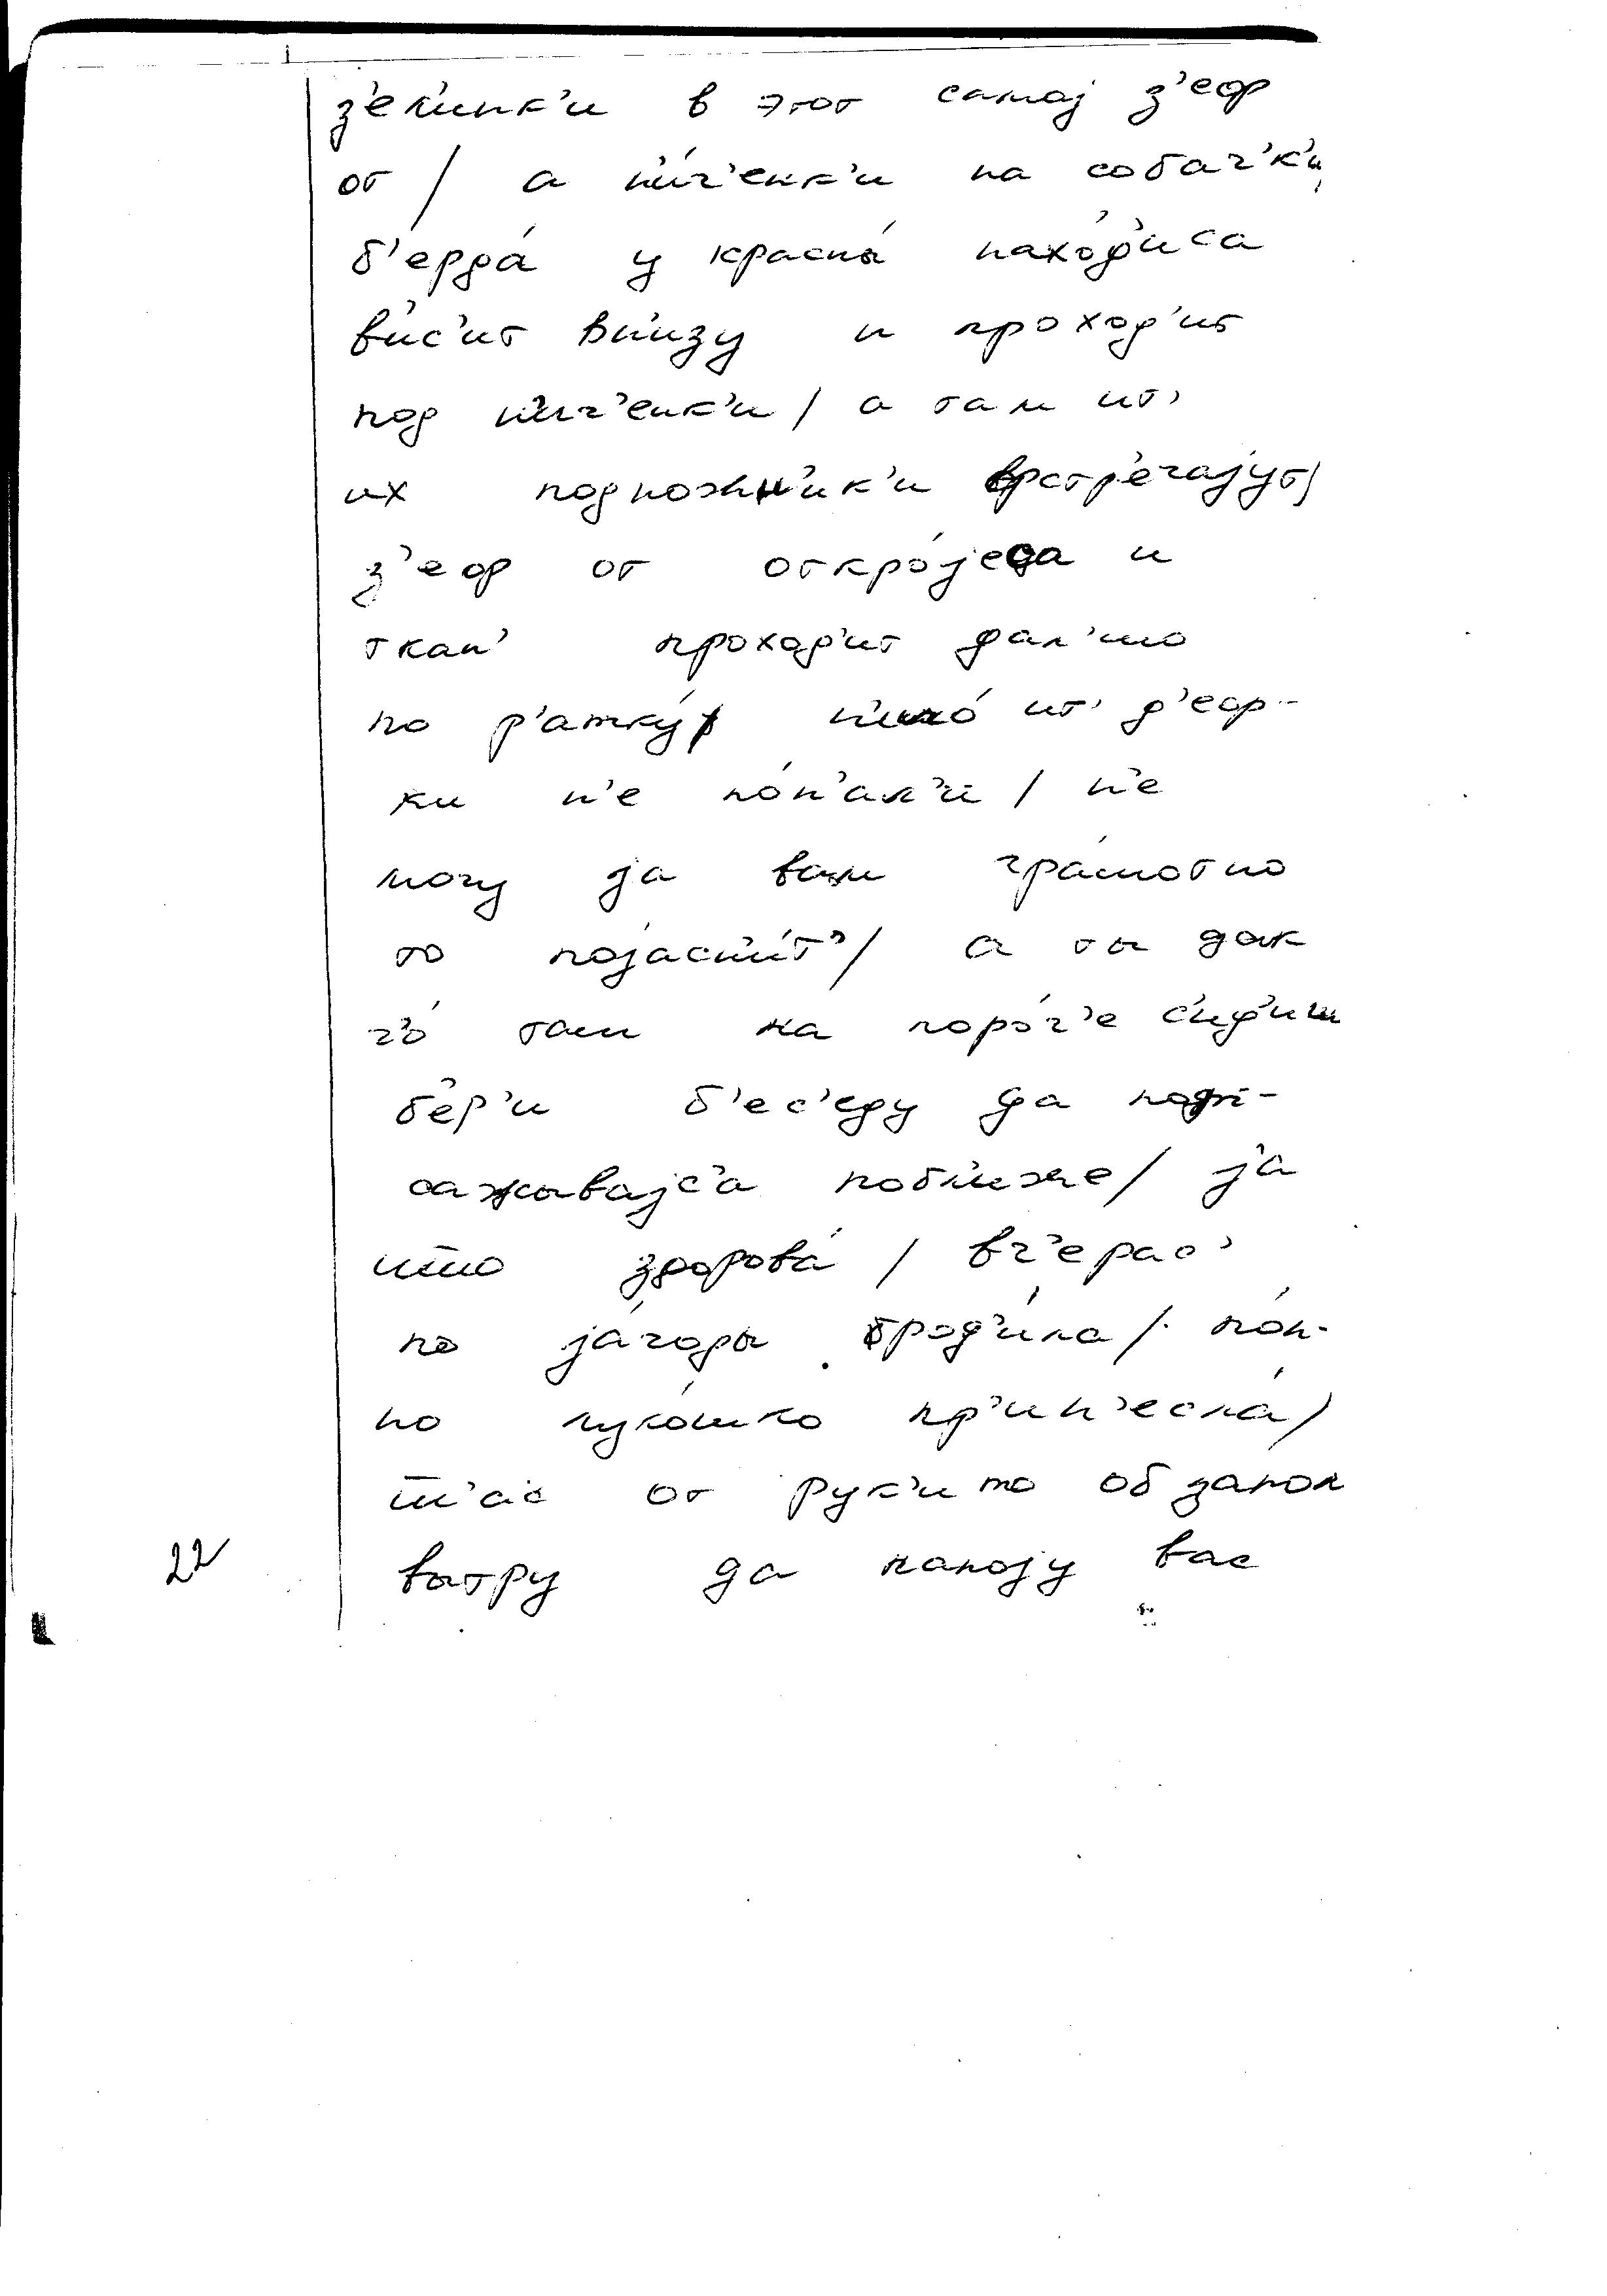 з'ел'инк'и в этот самај з'еор
от / а н'ит'енк'и на собач'к'и
б'ердá у краснá находиса
в'ис'ит вн'изу и проход'ит
под н'ит'енк'и / а там ит'
их подножн'ик'и встр'ечајут /
з'еор от откро́јеца и
ткан' проход'ит дал'шо
по р'атку́ / ит' д'еор-
ки н'е по́н'ал'и / н'е
могу ја вам гра́мотно
то појасн'и́т' / а ты дак
ч'о́ там на поро́г'е с'ид'иш
бер'и б'ес'еду да
саживајс'а побл'иже / ја
ишшо здорова́ / вч'ерас'
по ја́годы брод'и́ла / по́л-
но луко́шко пр'ин'есла́ /
ш'ас от рук'и то об запон
вытру да напоју вас
22